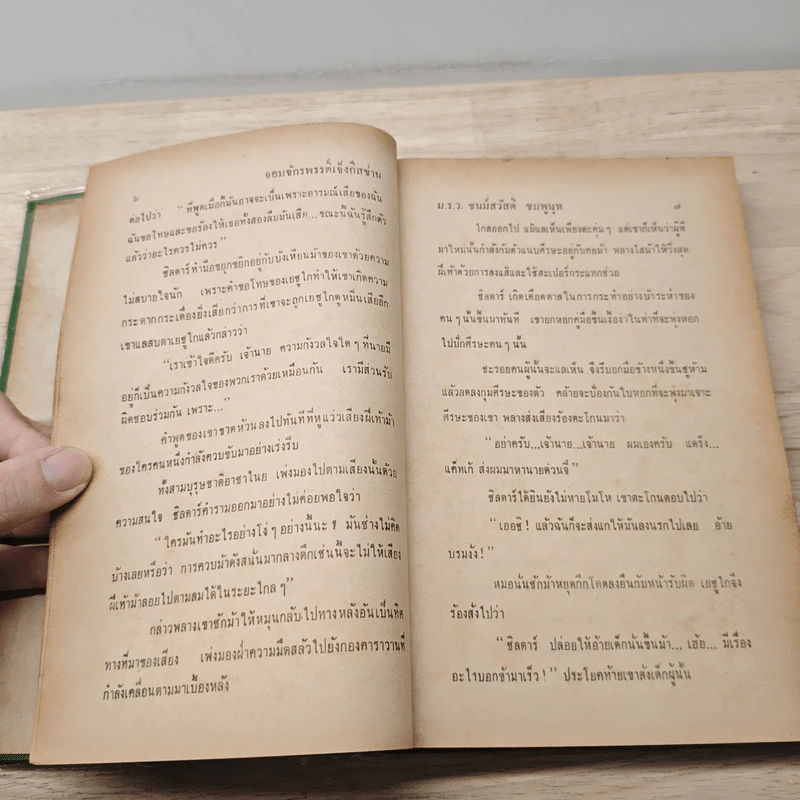 ๖ จอมจักรพรรดิ์เจ็งกิสข่าน
ต่อไปว่า "ที่พูดเมื่อกี้มันอาจจะเป็นเพราะอารมณ์เสียของฉัน
ฉันขอโทษและขอร้องให้เธอทั้งสองลืมมันเสีย...ขณะนี้ฉันรู้สึกตัว
แล้วว่าอะไรควรไม่ควร"
ชิลดาร์ทำมือขยุกขยิกอยู่กับบังเหียนม้าของเขาด้วยความ
ไม่สบายใจนัก เพราะคำขอโทษของเยซูไกทำให้เขาเกิดความ
กระดากกระเดื่องยิ่งเสียกว่าการที่เขาจะถูกเยซูไกดูหมิ่นเสียอีก
เขาแลสบตาเยซูไกแล้วกล่าวว่า
"เราเข้าใจดีครับ เจ้านาย ความกังวลใจใด ๆ ที่นายมี
อยู่ก็เป็นความกังวลใจของพวกเราด้วยเหมือนกัน เรามีส่วนรับ
ผิดชอบร่วมกัน เพราะ..."
คำพูดของเขาขาดห้วนลงไปทันทีที่หูแว่วเสียงฝีเท้าม้า
ของใครคนหนึ่งกำลังควบขับมาอย่างเร่งรีบ
ทั้งสามบุรุษชาติอาชาไนย เพ่งมองไปตามเสียงนั้นด้วย
ความสนใจ ชิลดาร์คำรามออกมาอย่างไม่ค่อยพอใจว่า
"ใครมันทำอะไรอย่างโง่ ๆ อย่างนี้นะ ? มันช่างไม่คิด
บ้างเลยหรือว่า การควบม้าดังสนั่นมากลางดึกเช่นนี้จะไม่ให้เสียง
ฝีเท้าม้าลอยไปตามลมได้ในระยะไกล ๆ"
กล่าวพลางเขาชักม้าให้หมุนกลับไปทางหลังอันเป็นทิศ
ทางที่มาของเสียง เพ่งมองฝ่าความมืดสลัวไปยังกองคาราวานที่
กำลังเคลื่อนตามมาเบื้องหลัง
ม.ร.ว. ชนม์สวัสดิ์ ชมพูนุท ๗
ไกลออกไป แม้แลเห็นเพียงตะคุ่ม ๆ แต่เขาก็เห็นว่าผู้ที่
มาใหม่นั้นกำลังก้มตัวแนบศีรษะอยู่กับคอม้า พลางไสม้าให้วิ่งสุด
ฝีเท้าด้วยการลงแส้และใช้สะเปอร์กระแทกช่วย
ชิลดาร์ เกิดเดือดดาลในการกระทำอย่างบ้าระห่ำของ
คน ๆ นั้นขึ้นมาทันที เขายกหอกคู่มือขึ้นเงื้อง่าในท่าที่จะพุ่งหอก
ไปปักศีรษะคน ๆ นั้น
ชะรอยคนผู้นั้นจะแลเห็น จึงรีบยกมือข้างหนึ่งขึ้นชูห้าม
แล้วลดลงกุมศีรษะของตัว คล้ายจะป้องกันใบหอกที่จะพุ่งมาเจาะ
ศีรษะของเขา พลางส่งเสียงร้องตะโกนมาว่า
"อย่าครับ...เจ้านาย...เจ้านาย ผมเองครับ แคริ๊ง...
แค็ทเก้ ส่งผมมาหานายด่วนจี๋"
ชิลดาร์ได้ยินยังไม่หายโมโห เขาตะโกนตอบไปว่า
"เออซิ ! แล้วฉันก็จะส่งแกให้มันลงนรกไปเลย อ้าย
บรมงั่ง ! "
หมอนั่นชักม้าหยุดกึกโดดลงยืนก้มหน้ารับผิด เยซูไกจึง
ร้องสั่งไปว่า
"ชิลดาร์ ปล่อยให้อ้ายเด็กนั่นขึ้นม้า... เฮ้ย... มีเรื่อง
อะไรบอกข้ามาเร็ว ! " ประโยคท้ายเขาสั่งเด็กผู้นั้น